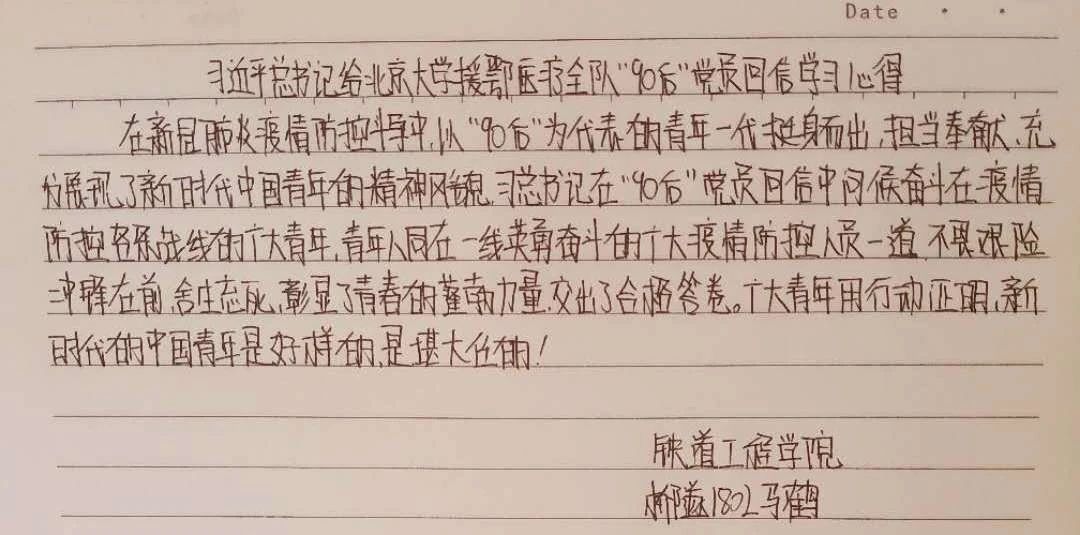 Date
习近平总书记给北京大学援鄂医疗全队“90后”党员回信学习心得
在新冠肺炎疫情防控斗争中,以“90后”为代表的青年一代挺身而出,担当奉献,充
分展现了新时代中国青年的精神风貌,习总书记在“90后”党员回信中问候奋斗在疫情
防控各条战线的广大青年,青年人同在一线英勇奋斗的广大疫情防控人员一道,不畏艰险
冲锋在前,舍生忘死,彰显了青春的蓬勃力量,交出了合格答卷。广大青年用行动证明,新
时代的中国青年是好样的,是堪大任的!
铁道工程学院
桥隧1802马鹤